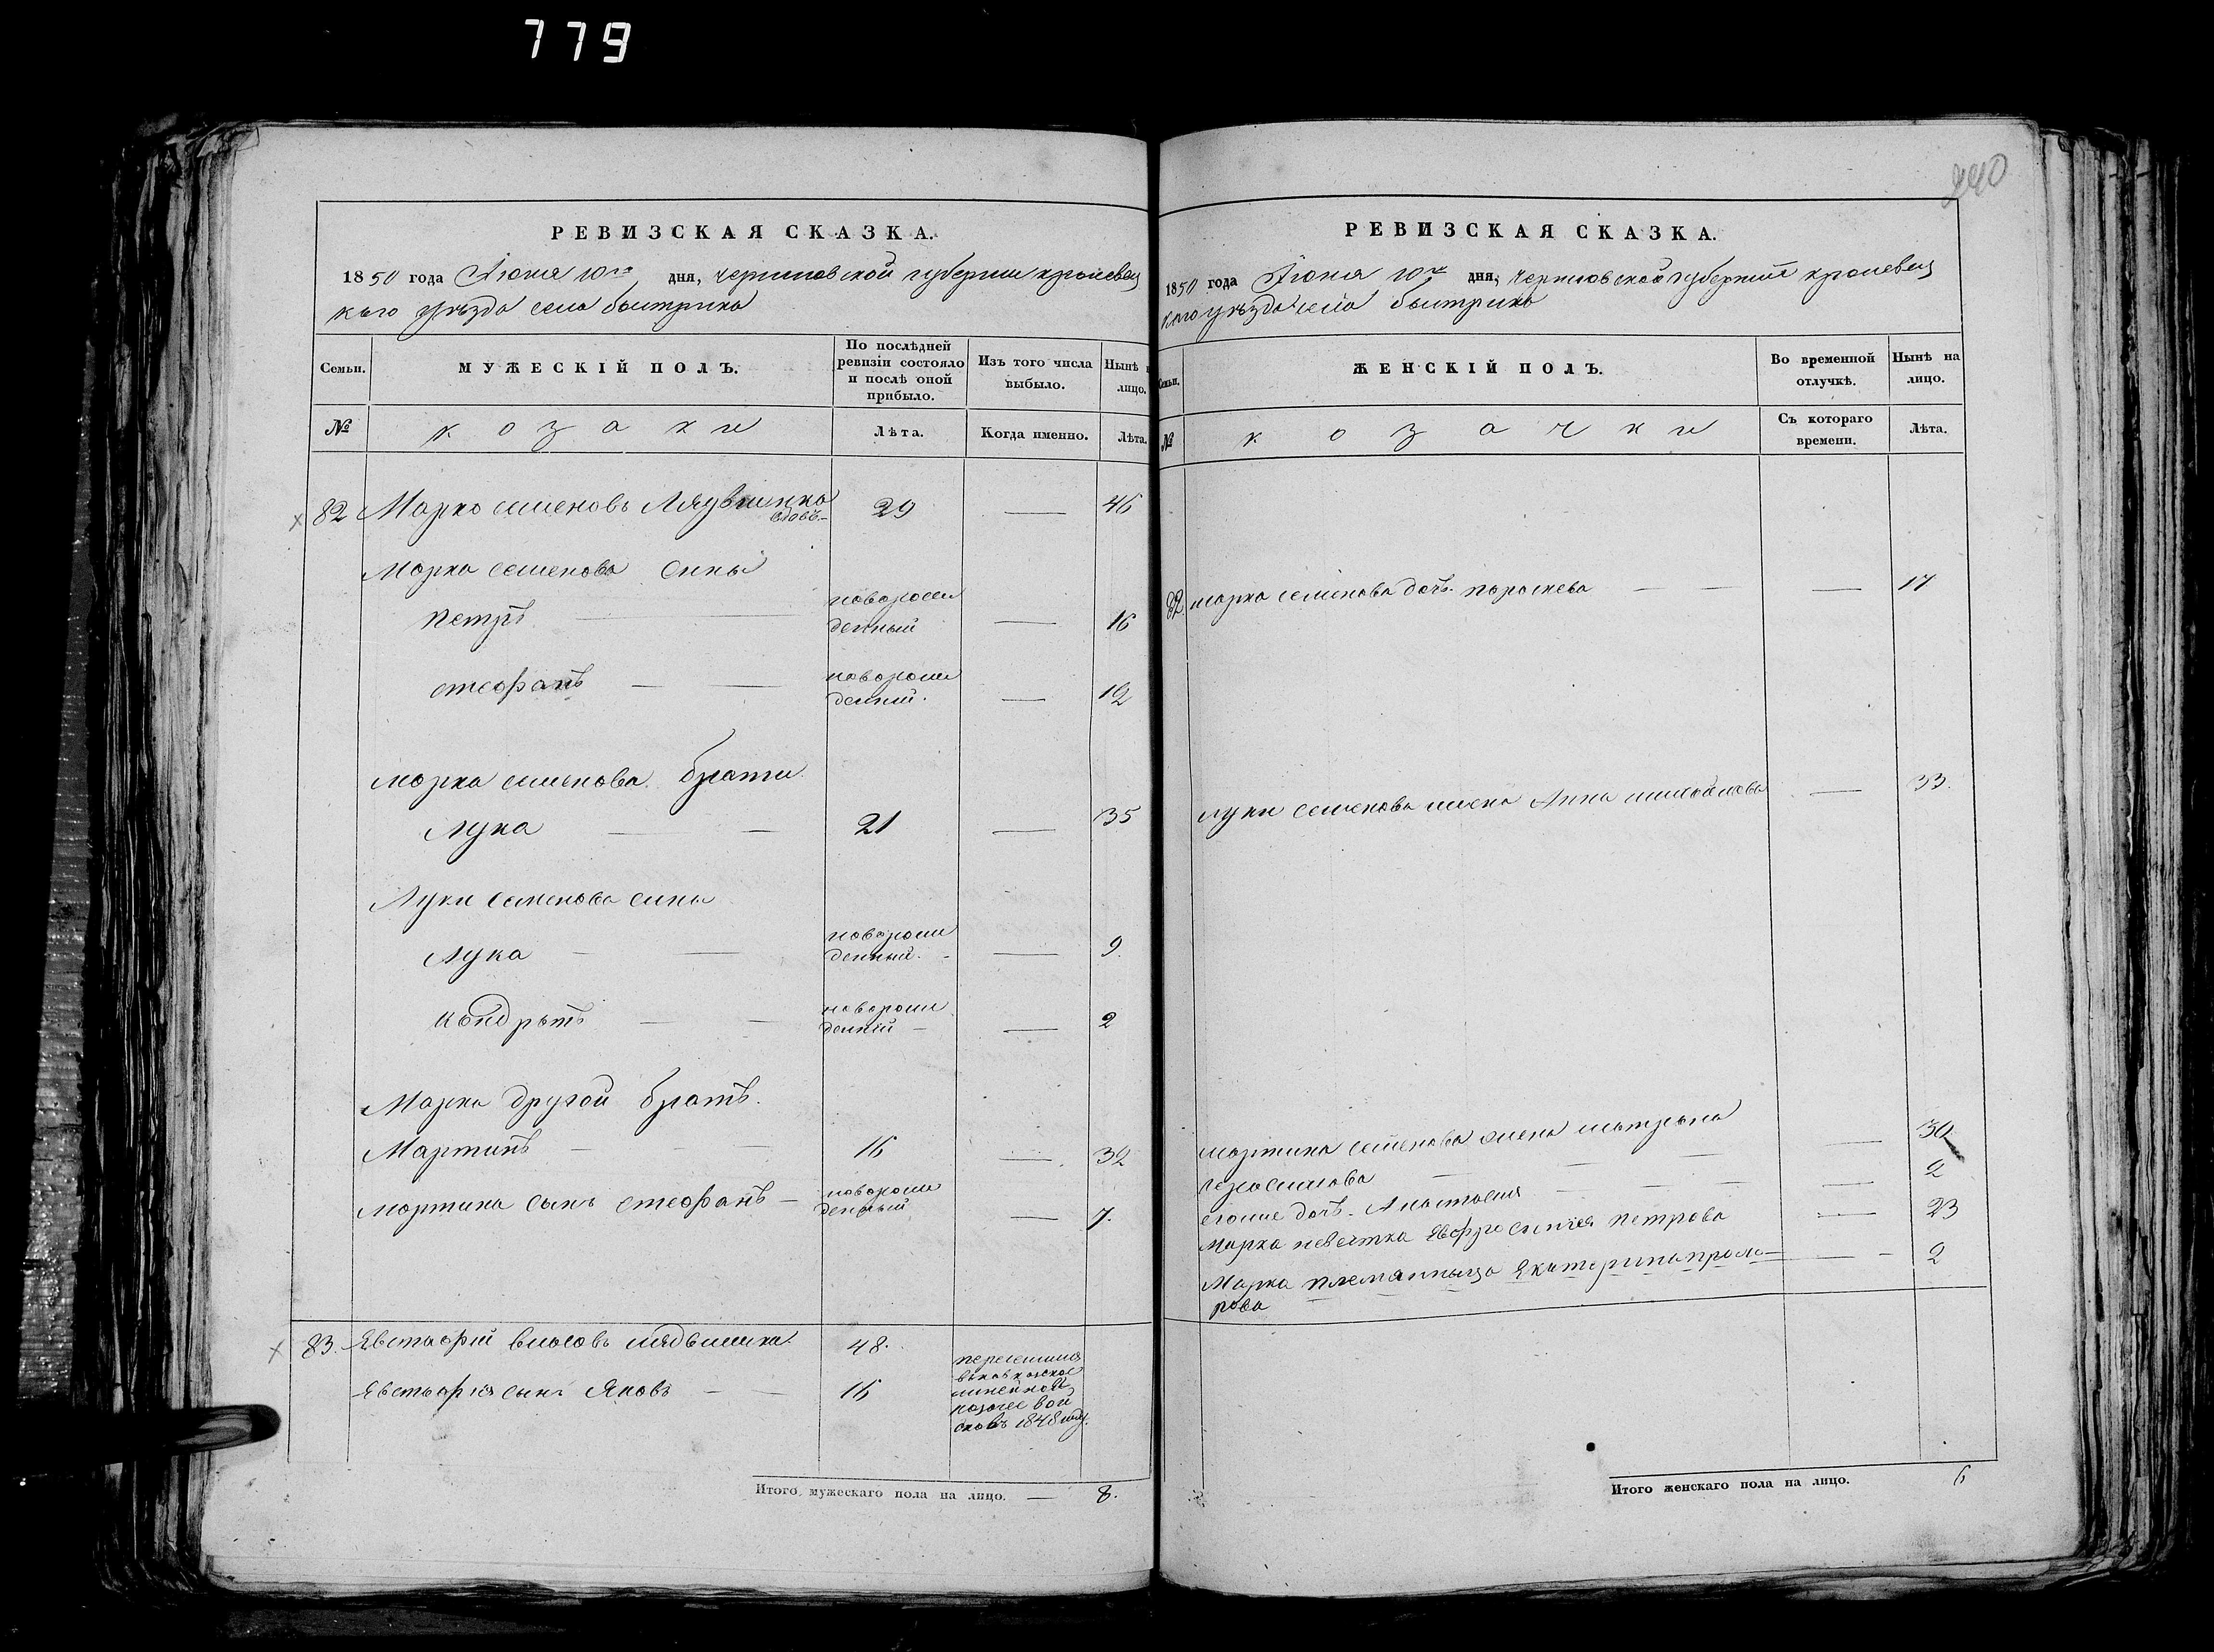 779
РЕВИЗСКАЯ СКАЗКА.
1850 года Июня 10го дня, черниговской губернии кролевец
каго уѣзда села быстрика
Семьи.
МУЖЕСКІЙ ПОЛЪ.
По послѣдней ревизіи состояло и послѣ оной прибыло.
Изъ того числа выбыло.
Нынѣ лицо.
№
козаки
Лѣта.
Когда именно.
Лѣта.
82 Марко семеновъ 29 — 46
вдовъ
Марка семенова сины
петръ — новорож денный — 16
стефанъ — — новорож денній — 12
марка семенова брати
Лука — — 21 — 35
Луки семенова сины
Лука — — новорож денный — 9.
кондратъ — — новорож денній — 2
Марка другой братъ.
Мартинъ — — 16 — 32
мартина сынъ стефанъ — новорож денный — 7.
83. Евстафий власовъ 48.
Евстафія сынъ Яковъ — — 16
линейное
казачее вой
ско въ 1848 году.
Итого мужескаго пола на лицо. — 8.
240
РЕВИЗСКАЯ СКАЗКА.
1850 года Июня 10го дня, черниговской губерніи кролевец
каго уѣзда села быстрика
Семьи.
ЖЕНСКІЙ ПОЛЪ.
Во временной отлучкѣ.
Нынѣ на лицо.
№
козачки
Съ котораго времени.
Лѣта.
82 марка семенова дочь параскева — — — 17
луки семенова жена Анна — 33.
мартина семенова жена матрона — 30
герасимова — — —
егоже дочь Анастасия — — — 2
марка невестка Евфросинія петрова — 23
Марка племянныца Екатерина — 2
рова
Итого женскаго пола на лицо. 6